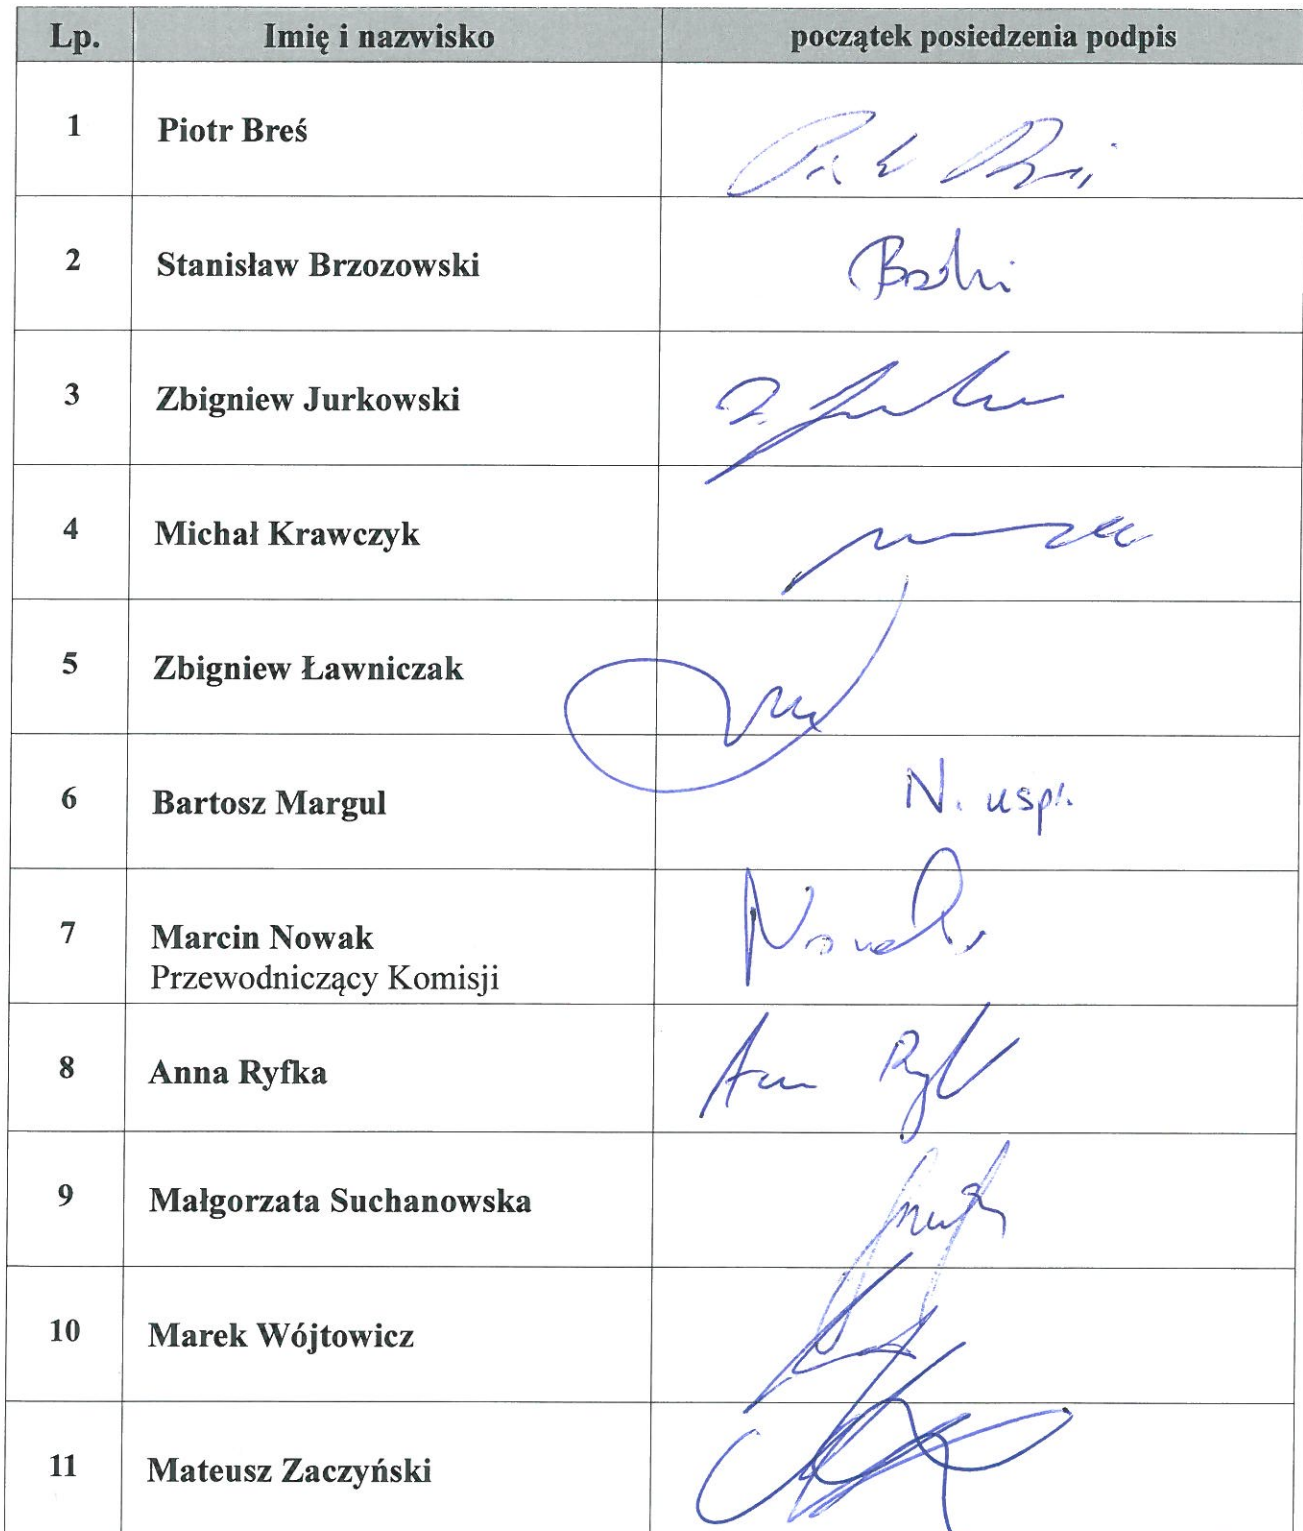 Lp. Imię i nazwisko początek posiedzenia podpis
1 Piotr Breś
2 Stanisław Brzozowski
3 Zbigniew Jurkowski
4 Michał Krawczyk
5 Zbigniew Ławniczak
6 Bartosz Margul N. uspr.
7 Marcin Nowak Nowak
Przewodniczący Komisji
8 Anna Ryfka
9 Małgorzata Suchanowska
10 Marek Wójtowicz
11 Mateusz Zaczyński